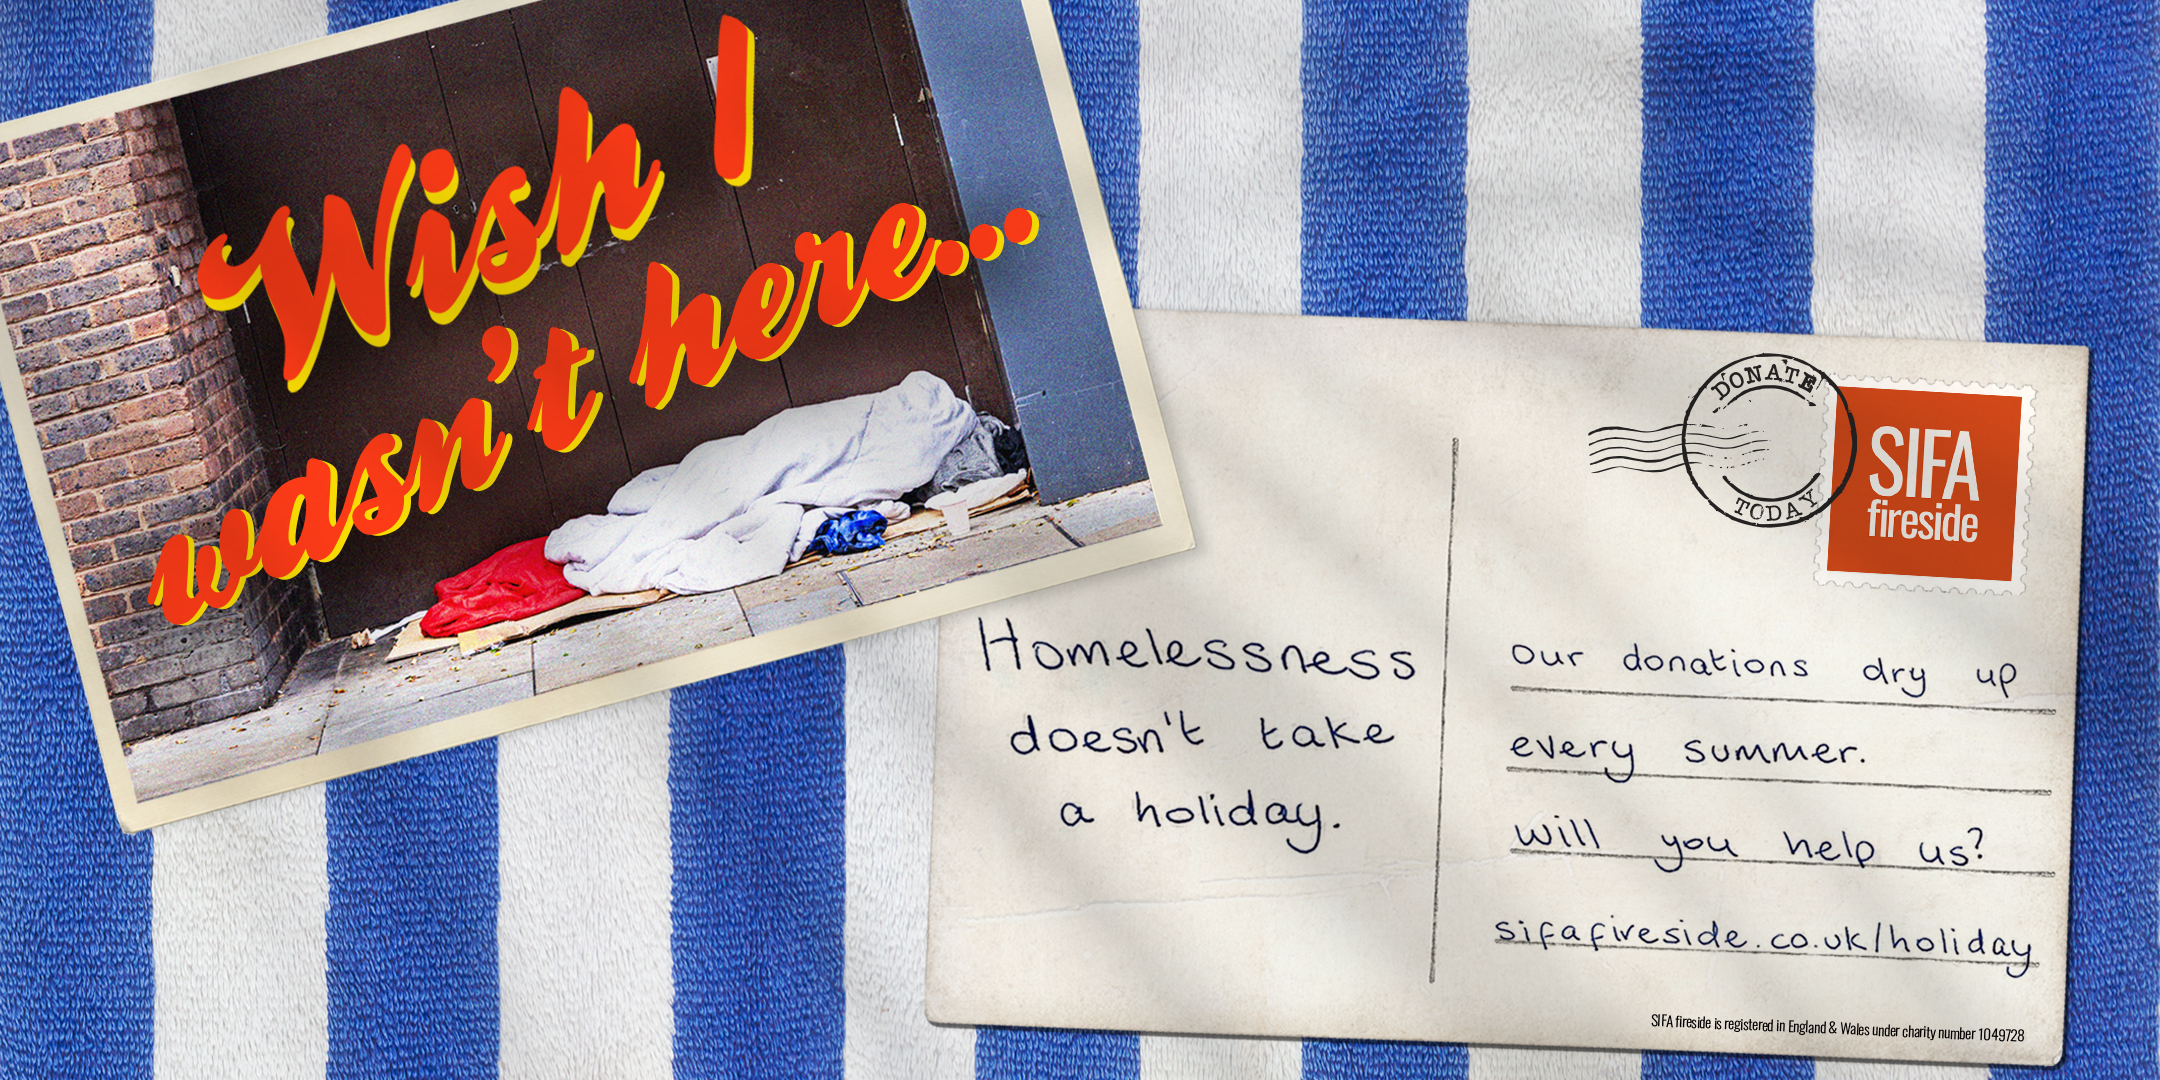 Wish I
wasn't here...
DONATE
TODAY
SIFA
fireside
Homelessness
doesn't take
a holiday.
our donations dry up
every summer.
will you help us?
sifafireside.co.uk/holiday
SIFA fireside is registered in England & Wales under charity number 1049728